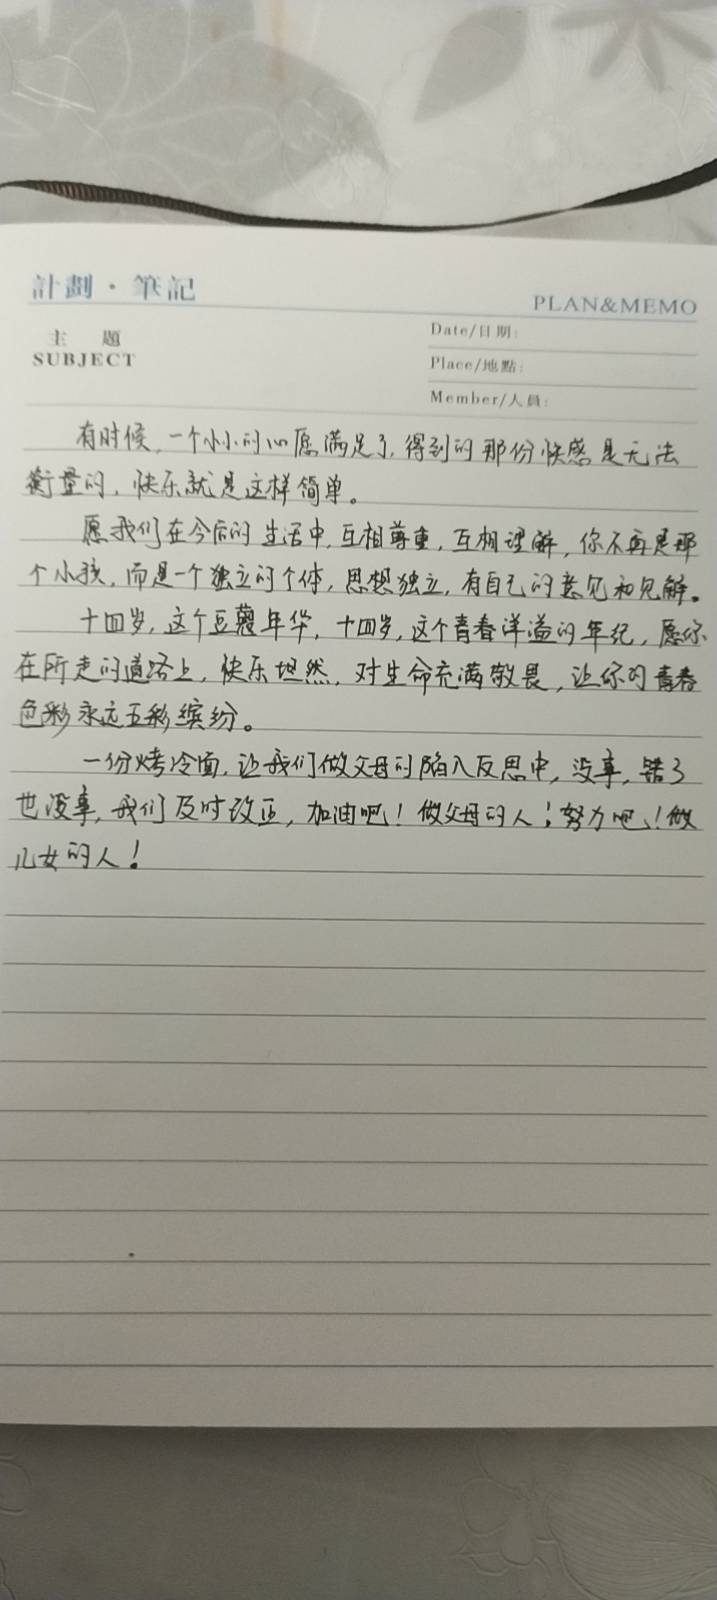 計劃·筆記
PLAN&MEMO
主題
SUBJECT
Date/日期:
Place/地點:
Member/人員:
有时候,一个小小的心愿满足了,得到的那份快感是无法
衡量的,快乐就是这样简单。
愿我们在今后的生活中,互相尊重,互相理解,你不再是那
个小孩,而是一个独立的个体,思想独立,有自己的意见和见解。
十四岁,这个豆蔻年华,十四岁,这个青春洋溢的年纪,愿你
在所走的道路上,快乐坦然,对生命充满敬畏,让你的青春
色彩永远五彩缤纷。
一份烤冷面,让我们做父母的陷入反思中,没事,错了
也没事,我们及时改正,加油吧!做父母的人!努力吧!做
儿女的人!